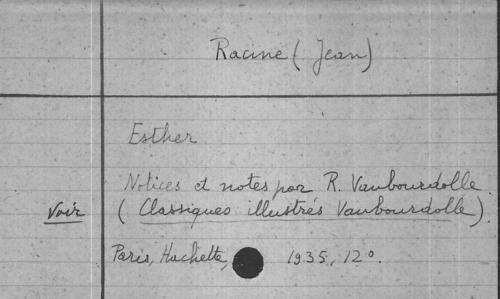 Racine (Jean)
Esther
Notices et notes par R. Vaubourdolle.
Voir (Classiques illustrés Vaubourdolle).
Paris, Hachette, 1935, 12°.